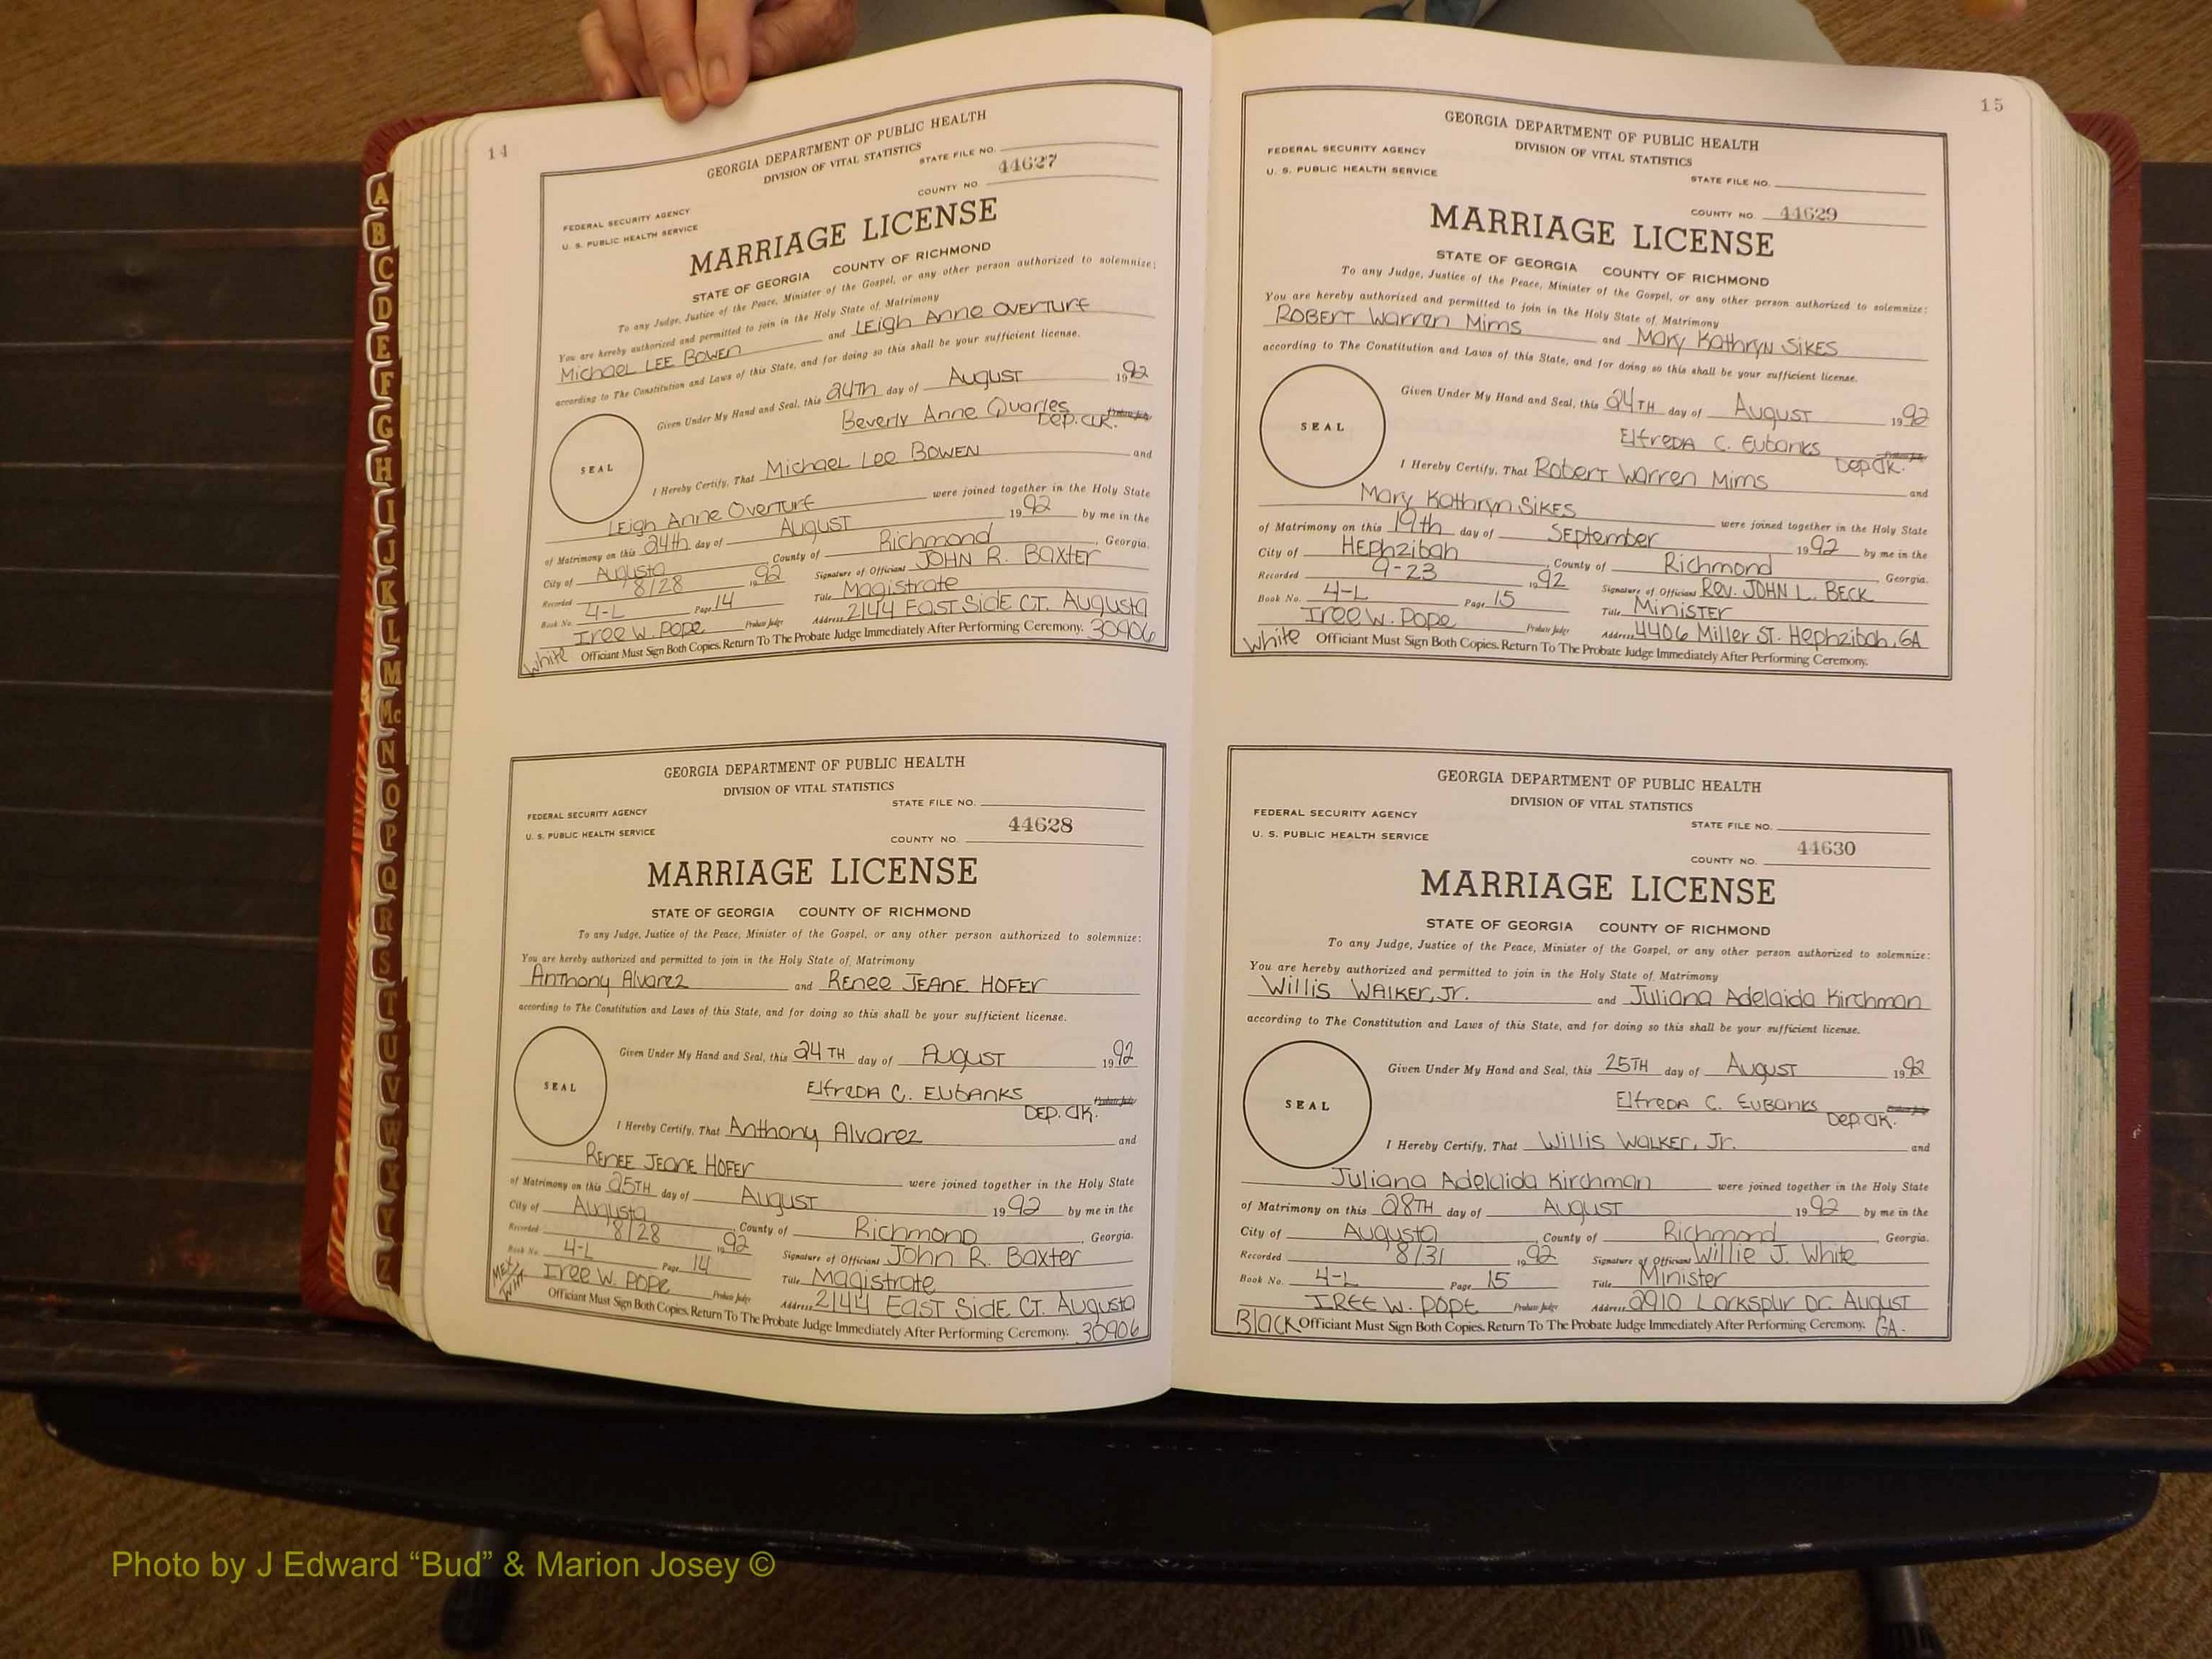 A
B
C
D
E
F
G
H
I
J
K
L
M
Mc
N
O
P
Q
R
S
T
U
V
W
X
Y
Z
14
GEORGIA DEPARTMENT OF PUBLIC HEALTH
DIVISION OF VITAL STATISTICS
STATE FILE NO.
FEDERAL SECURITY AGENCY
U. S. PUBLIC HEALTH SERVICE
COUNTY NO. 44627
MARRIAGE LICENSE
STATE OF GEORGIA COUNTY OF RICHMOND
To any Judge, Justice of the Peace, Minister of the Gospel, or any other person authorized to solemnize:
You are hereby authorized and permitted to join in the Holy State of Matrimony
Michael LEE BOWEN and LEigh Anne OVERTURF
according to The Constitution and Laws of this State, and for doing so this shall be your sufficient license.
Given Under My Hand and Seal, this 24TH day of AUGUST 1992
Beverly Anne Quarles
DEP. CLK. Probate Judge
SEAL
I Hereby Certify, That Michael Lee BOWEN and
LEigh Anne OVERTURF were joined together in the Holy State
of Matrimony on this 24th day of AUGUST 1992 by me in the
City of Augusta County of Richmond, Georgia.
Recorded 8/28 1992 Signature of Officiant JOHN R. Baxter
Book No. 4-L Page 14 Title Magistrate
IREE W. POPE Probate Judge Address 2144 EAST SIDE CT. Augusta
White Officiant Must Sign Both Copies. Return To The Probate Judge Immediately After Performing Ceremony. 30906
GEORGIA DEPARTMENT OF PUBLIC HEALTH
DIVISION OF VITAL STATISTICS
STATE FILE NO.
FEDERAL SECURITY AGENCY
U. S. PUBLIC HEALTH SERVICE
COUNTY NO. 44628
MARRIAGE LICENSE
STATE OF GEORGIA COUNTY OF RICHMOND
To any Judge, Justice of the Peace, Minister of the Gospel, or any other person authorized to solemnize:
You are hereby authorized and permitted to join in the Holy State of Matrimony
Anthony Alvarez and RENEE JEANE HOFER
according to The Constitution and Laws of this State, and for doing so this shall be your sufficient license.
Given Under My Hand and Seal, this 24TH day of AUGUST 1992
ElfREDA C. EUBANKS
DEP. Clk. Probate Judge
SEAL
I Hereby Certify, That Anthony Alvarez and
RENEE JEANE HOFER were joined together in the Holy State
of Matrimony on this 25TH day of AUGUST 1992 by me in the
City of Augusta County of Richmond, Georgia.
Recorded 8/28 1992 Signature of Officiant John R. Baxter
Book No. 4-L Page 14 Title Magistrate
IREE W. POPE Probate Judge Address 2144 EAST SIDE CT. Augusta
MEX/WHT. Officiant Must Sign Both Copies. Return To The Probate Judge Immediately After Performing Ceremony. 30906
15
GEORGIA DEPARTMENT OF PUBLIC HEALTH
DIVISION OF VITAL STATISTICS
FEDERAL SECURITY AGENCY
U. S. PUBLIC HEALTH SERVICE
STATE FILE NO.
COUNTY NO. 44629
MARRIAGE LICENSE
STATE OF GEORGIA COUNTY OF RICHMOND
To any Judge, Justice of the Peace, Minister of the Gospel, or any other person authorized to solemnize:
You are hereby authorized and permitted to join in the Holy State of Matrimony
ROBERT Warren Mims and Mary Kathryn SIKES
according to The Constitution and Laws of this State, and for doing so this shall be your sufficient license.
Given Under My Hand and Seal, this 24TH day of AUGUST 1992
ElfREDA C. Eubanks
Dep. Clk. Probate Judge
SEAL
I Hereby Certify, That Robert Warren Mims and
Mary Kathryn SIKES were joined together in the Holy State
of Matrimony on this 19th day of SEptember 1992 by me in the
City of HEphzibah, County of Richmond, Georgia.
Recorded 9-23 1992 Signature of Officiant Rev. JOHN L. BECK
Book No. 4-L Page 15 Title MINISTER
IREE W. POPE Probate Judge Address 4406 Miller ST. Hephzibah, GA
White Officiant Must Sign Both Copies. Return To The Probate Judge Immediately After Performing Ceremony.
GEORGIA DEPARTMENT OF PUBLIC HEALTH
DIVISION OF VITAL STATISTICS
FEDERAL SECURITY AGENCY
U. S. PUBLIC HEALTH SERVICE
STATE FILE NO.
COUNTY NO. 44630
MARRIAGE LICENSE
STATE OF GEORGIA COUNTY OF RICHMOND
To any Judge, Justice of the Peace, Minister of the Gospel, or any other person authorized to solemnize:
You are hereby authorized and permitted to join in the Holy State of Matrimony
Willis WALKER, Jr. and Juliana Adelaida Kirchman
according to The Constitution and Laws of this State, and for doing so this shall be your sufficient license.
Given Under My Hand and Seal, this 25TH day of August 1992
ElfREDA C. EUBANKS
Dep. Clk. Probate Judge
SEAL
I Hereby Certify, That Willis WALKER, Jr. and
Juliana Adelaida Kirchman were joined together in the Holy State
of Matrimony on this 28TH day of AUGUST 1992 by me in the
City of Augusta, County of Richmond, Georgia.
Recorded 8/31 1992 Signature of Officiant Willie J. White
Book No. 4-L Page 15 Title Minister
IREE W. POPE Probate Judge Address 2910 Larkspur Dr. August
Black Officiant Must Sign Both Copies. Return To The Probate Judge Immediately After Performing Ceremony. GA.
Photo by J Edward “Bud” & Marion Josey ©